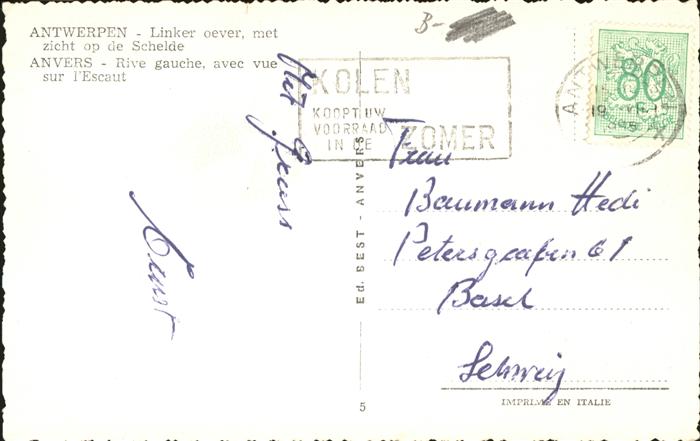 ANTWERPEN - Linker oever, met
zicht op de Schelde
ANVERS - Rive gauche, avec vue
sur l'Escaut
B-
KOLEN
KOOPT UW
VOORRAAD
IN DE
ZOMER
ANTWERPEN
80
Gruss
Ernst
Ed. BEST - ANVERS
Frau
Baumann Hedi
Petersgraben 61
Basel
Schweiz
IMPRIME EN ITALIE
5